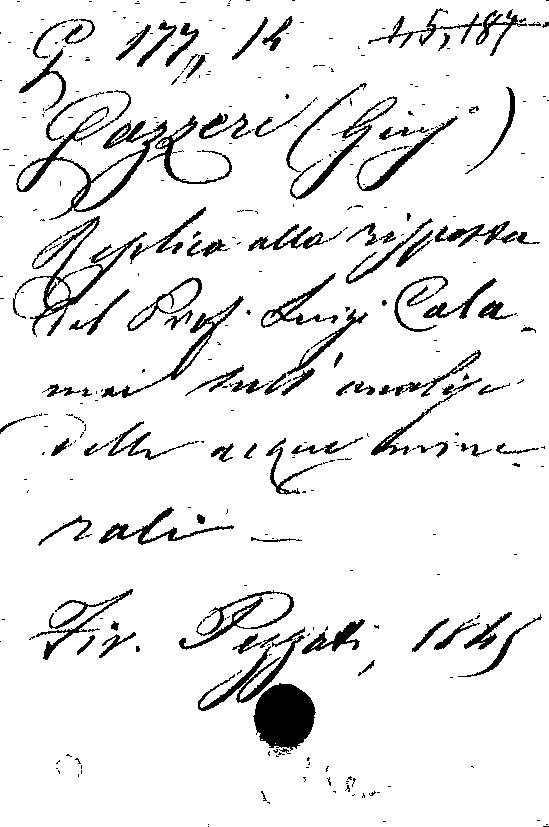 G. 177,, 14 1,5,187
Gazzeri (Giusê)
Replica alla risposta
del Prof. Luigi Cala-
mai sull'analisi
delle acque mine-
rali —
Fir. Pezzati, 1845